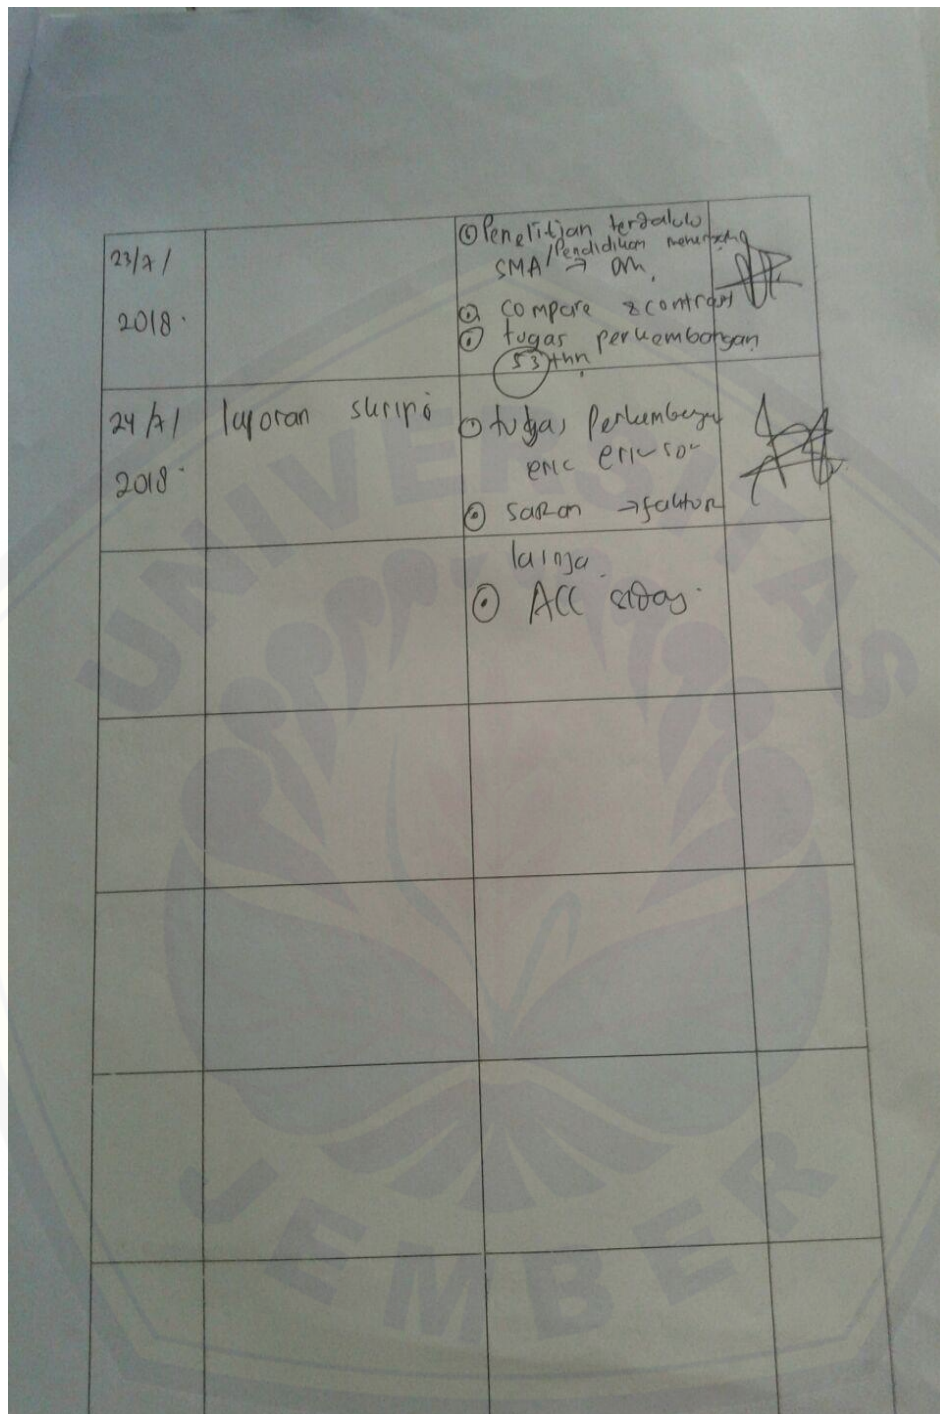 23/7/
2018.
Penelitian terdahulu
SMA/Pendidikan
compare & contrast
tugas perkembangan
53 thn
24/7/
2018.
laporan skripsi
tugas perkembangan
eric erikson
saran → faktor
lainya
ACC sidang.
UNIVERSITAS
JEMBER